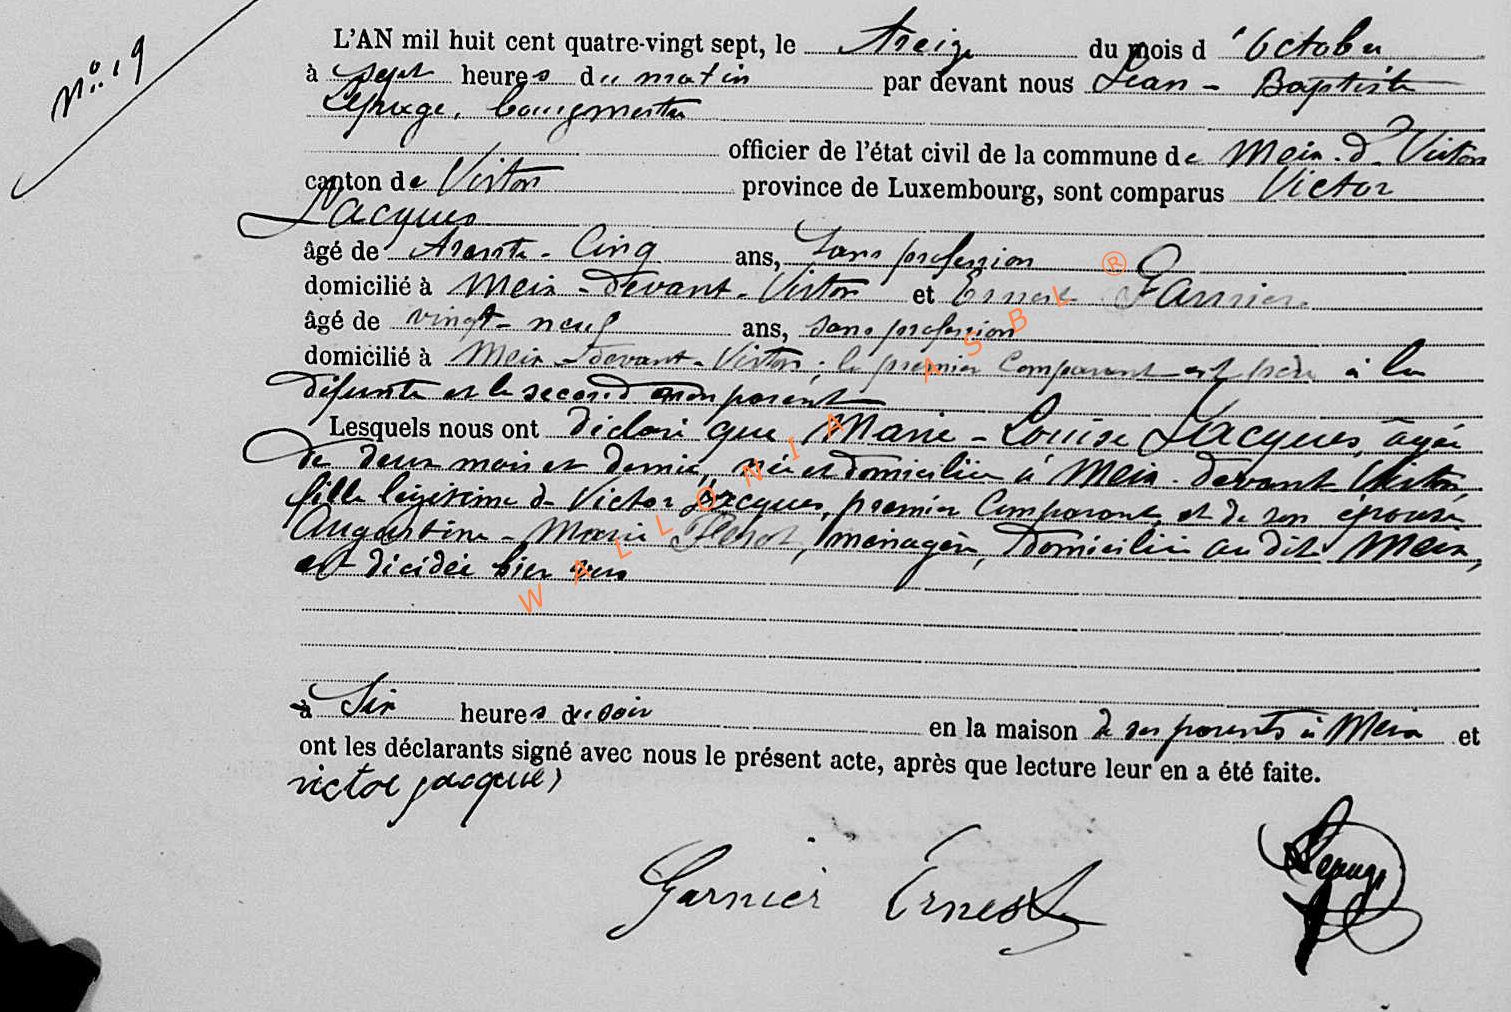 N° 19
L'AN mil huit cent quatre-vingt sept, le treize du mois d'octobre
à sept heures du matin par devant nous Jean - Baptiste
Lepage, bourgmestre
officier de l'état civil de la commune de Meix-d-Virton
canton de Virton province de Luxembourg, sont comparus Victor
Jacques
âgé de trente-cinq ans, sans profession
domicilié à Meix-devant-Virton et Ernest Garnier
âgé de vingt-neuf ans, sans profession
domicilié à Meix-devant-Virton, le premier comparant est père à la
défunte et le second non parent
Lesquels nous ont déclaré que Marie-Louise Jacques, âgée
de deux mois et demie, née et domiciliée à Meix-devant Virton,
fille légitime de Victor Jacques, premier comparant, et de son épouse,
Augustine-Marie ménagère, domiciliée au dit Meix,
est décédée hier
à six heures du soir en la maison de ses parents à Meix et
ont les déclarants signé avec nous le présent acte, après que lecture leur en a été faite.
victor jacques
Garnier Ernest
Lepage
WALLONIA ASBL ®